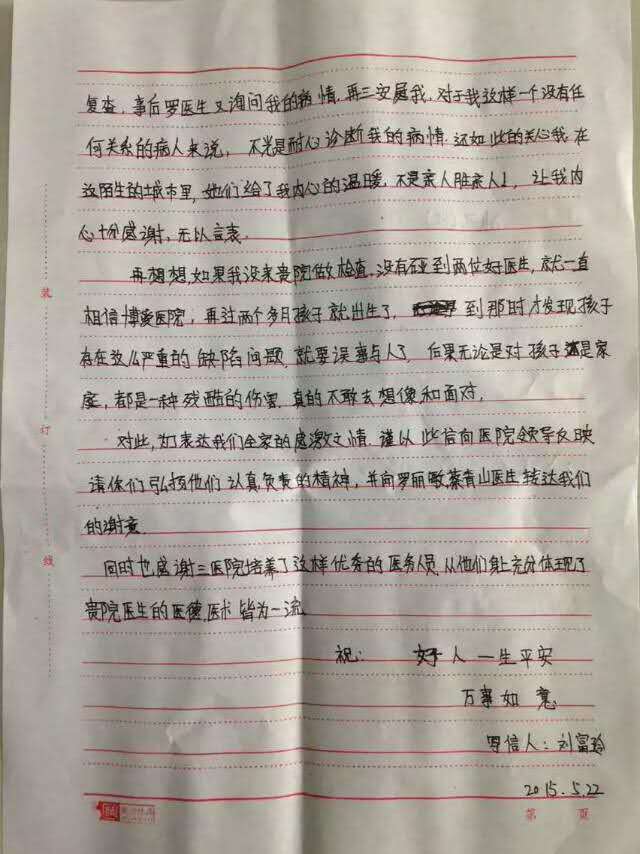 复查，事后罗医生又询问我的病情，再三安慰我，对于我这样一个没有任
何关系的病人来说，不光是耐心诊断我的病情，还如此的关心我，在
这陌生的城市里，她们给了我内心的温暖，不是亲人胜亲人！，让我内
心十分感谢，无以言表。
再想想，如果我没来贵院做检查，没有碰到两位好医生，就一直
相信博爱医院，再过两个多月孩子就出生了，到那时才发现孩子
存在这么严重的缺陷问题，就要误事与人了，后果无论是对孩子还是家
庭，都是一种残酷的伤害，真的不敢去想像和面对。
对此，为了表达我们全家的感激之情，谨以此信向医院领导反映
请你们弘扬他们认真负责的精神，并向罗丽敏蔡青山医生转达我们
的谢意。
同时也感谢三医院培养了这样优秀的医务人员，从他们身上充分体现了
贵院医生的医德，医术皆为一流。
祝： 好人一生平安
万事如意
写信人：刘富玲
2015.5.22
装
订
线
第 页